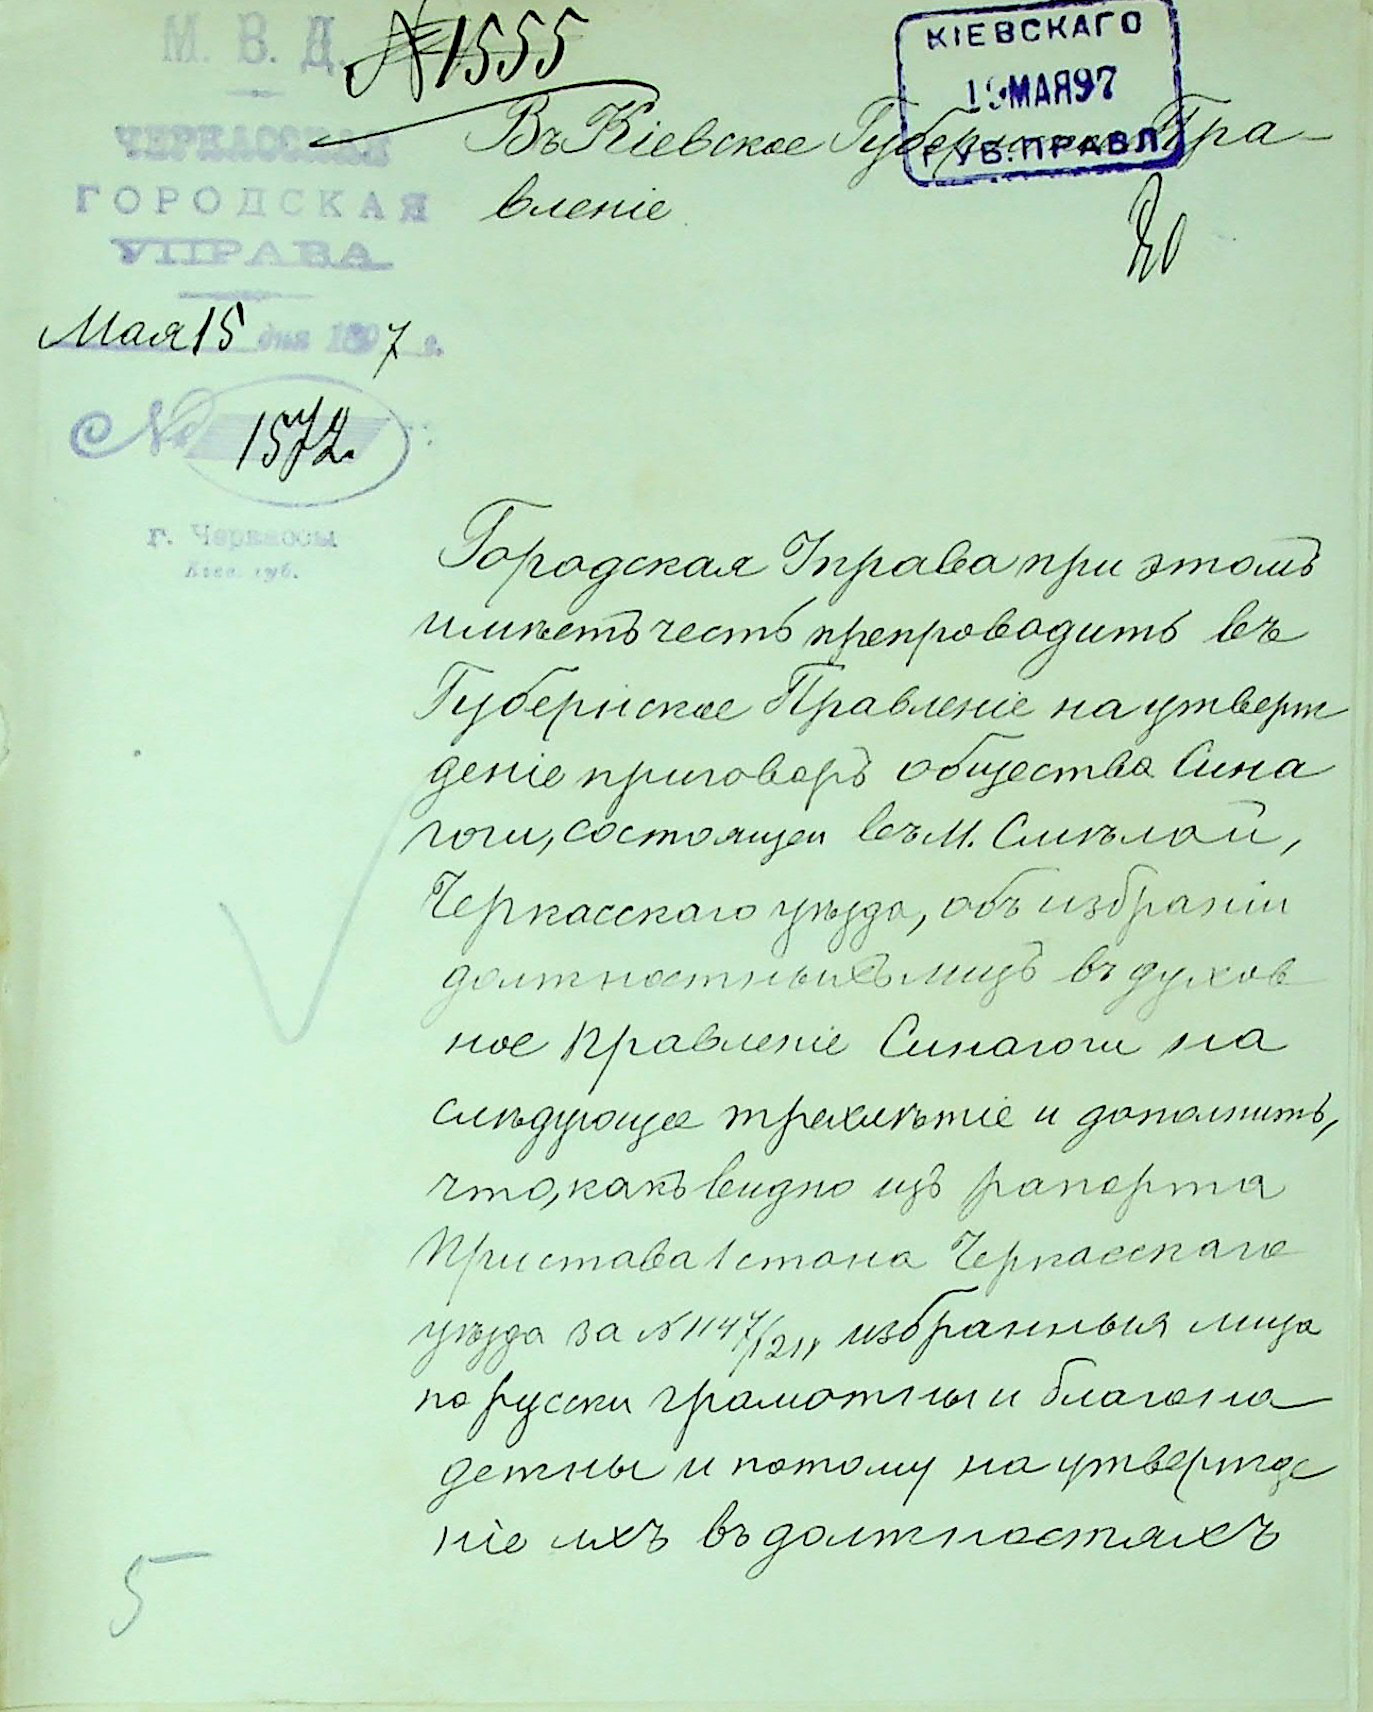 М. В. Д.
ЧЕРКАССКАЯ
ГОРОДСКАЯ
УПРАВА
Мая 15 дня 1897 г.
№ 1572.
г. Черкассы
Кіев. губ.
№ 1555
КІЕВСКАГО
19 МАЯ 97
ГУБ. ПРАВЛ
Въ Кіевское Губернское Пра-
вленіе
Городская Управа при этомъ
имѣетъ честь препроводить въ
Губернское Правленіе на утверж
деніе приговоръ общества Сина
гоги, состоящей въ м. Смѣлой,
Черкасскаго уѣзда, объ избраніи
должностныхъ лицъ въ духов
ное Правленіе Синагоги на
слѣдующее трехлѣтіе и дополнить,
что, какъ видно изъ рапорта
Пристава 1 стана Черкасскаго
уѣзда за № 1147/1211, избранныя лица
по русски грамотны и благона
дежны и потому на утвержде
ніе ихъ въ должностяхъ
5